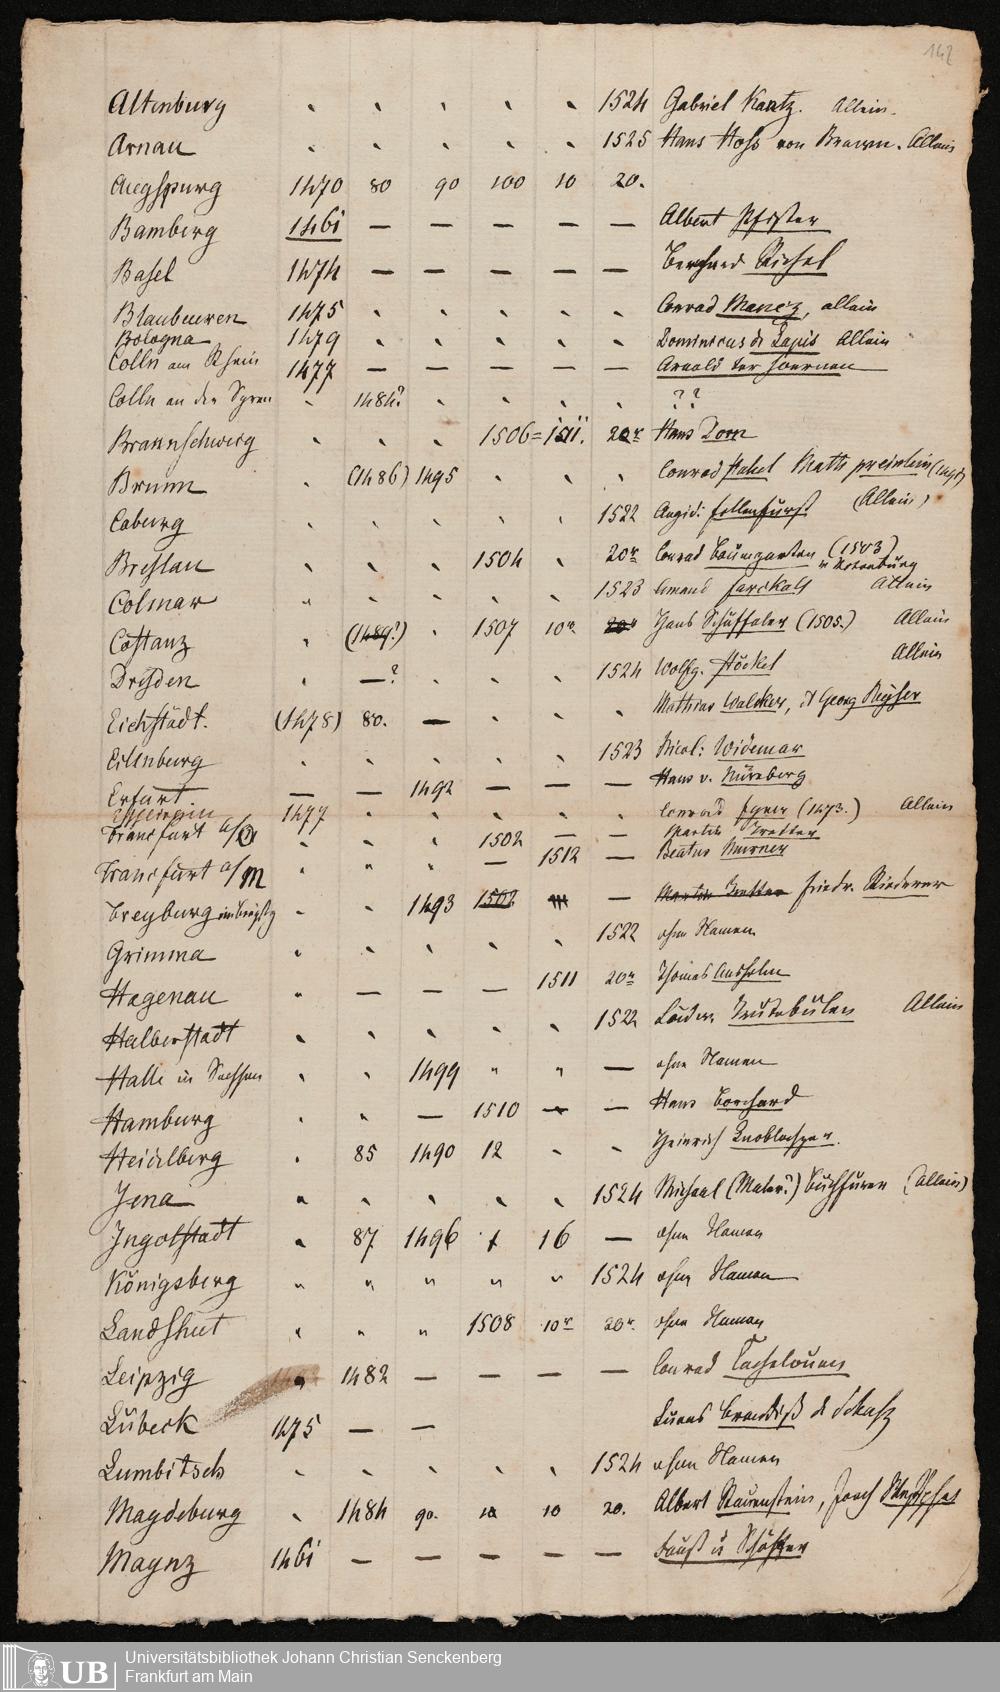 142
Altenburg 1524 Gabriel Kantz. Allein.
Arnau 1525 Hans Hoss von Braunn. Allein
Augspurg 1470 80 90 100 10 20.
Bamberg 1461 — — — — — Albert Pfister
Basel 1474 — — — — — Bernhard Richel
Blaubeuren 1475 Conrad Mancz, allein
Bologna 1479 Dominicus de Lapis Allein
Colln am Rhein 1477 — — — — — Arnold ter hoernen
Colln an der Spree 1484? ??
Braunschweig 1506 = 1511. 20r Hans Dorn
Brunn (1486) 1495 Conrad Stahel Math preinlein
Coburg 1522 Aegid: fellenfurst (Allein)
Breslau 1504 20r Conrad Baumgarten (1503)
v Rotenburg
Colmar 1523 Amand farckal Allein
Costanz (1489?) 1507 10r 20r Hans Schäffeler (1505.) Allein
Dresden —? 1524 Wolfg. Stöckel Allein
Eichstädt. (1478) 80. — Mathias Walcker, et Georg Reyser
Eilenburg 1523 Nicol: Widemar
Erfurt — — 1492 — — — Hans v. Nürnberg
Esslingen 1477 Conrad fyner (1473.) Allein
Francfurt a/O 1502 — — Martin Tretter
Francfurt a/M — 1512 — Beatus Murner
Freyburg im Brisg 1493 1502 — Martin Tretter friedr. Riederer
Grimma 1522 ohne Namen
Hagenau — — — 1511 20r Thomas Anshelm
Halberstadt 1522 Ludw. Trutebulen Allein
Halle in Sachsen 1499 — ohne Namen
Hamburg — 1510 — — Hans Borchard
Heidelberg 85 1490 12 Heinrich Knoblochzer.
Jena 1524 Michael (Mater?) Buchfurer (Allein)
Ingolstadt 87 1496 + 16 — ohne Namen
Königsberg 1524 ohne Namen
Landshut 1508 10r 20r. ohne Namen
Leipzig 1482 — — — — Conrad Kachelouen
Lübeck 1475 — — Lucas Brandiß de Schasz
Lumbitsch 1524 ohne Namen
Magdeburg 1484 90. 10 10 20. Albert Rauenstein, Joach Westphal
Maynz 1461 — — — — — Faust u Schöffer
UB Universitätsbibliothek Johann Christian Senckenberg
Frankfurt am Main